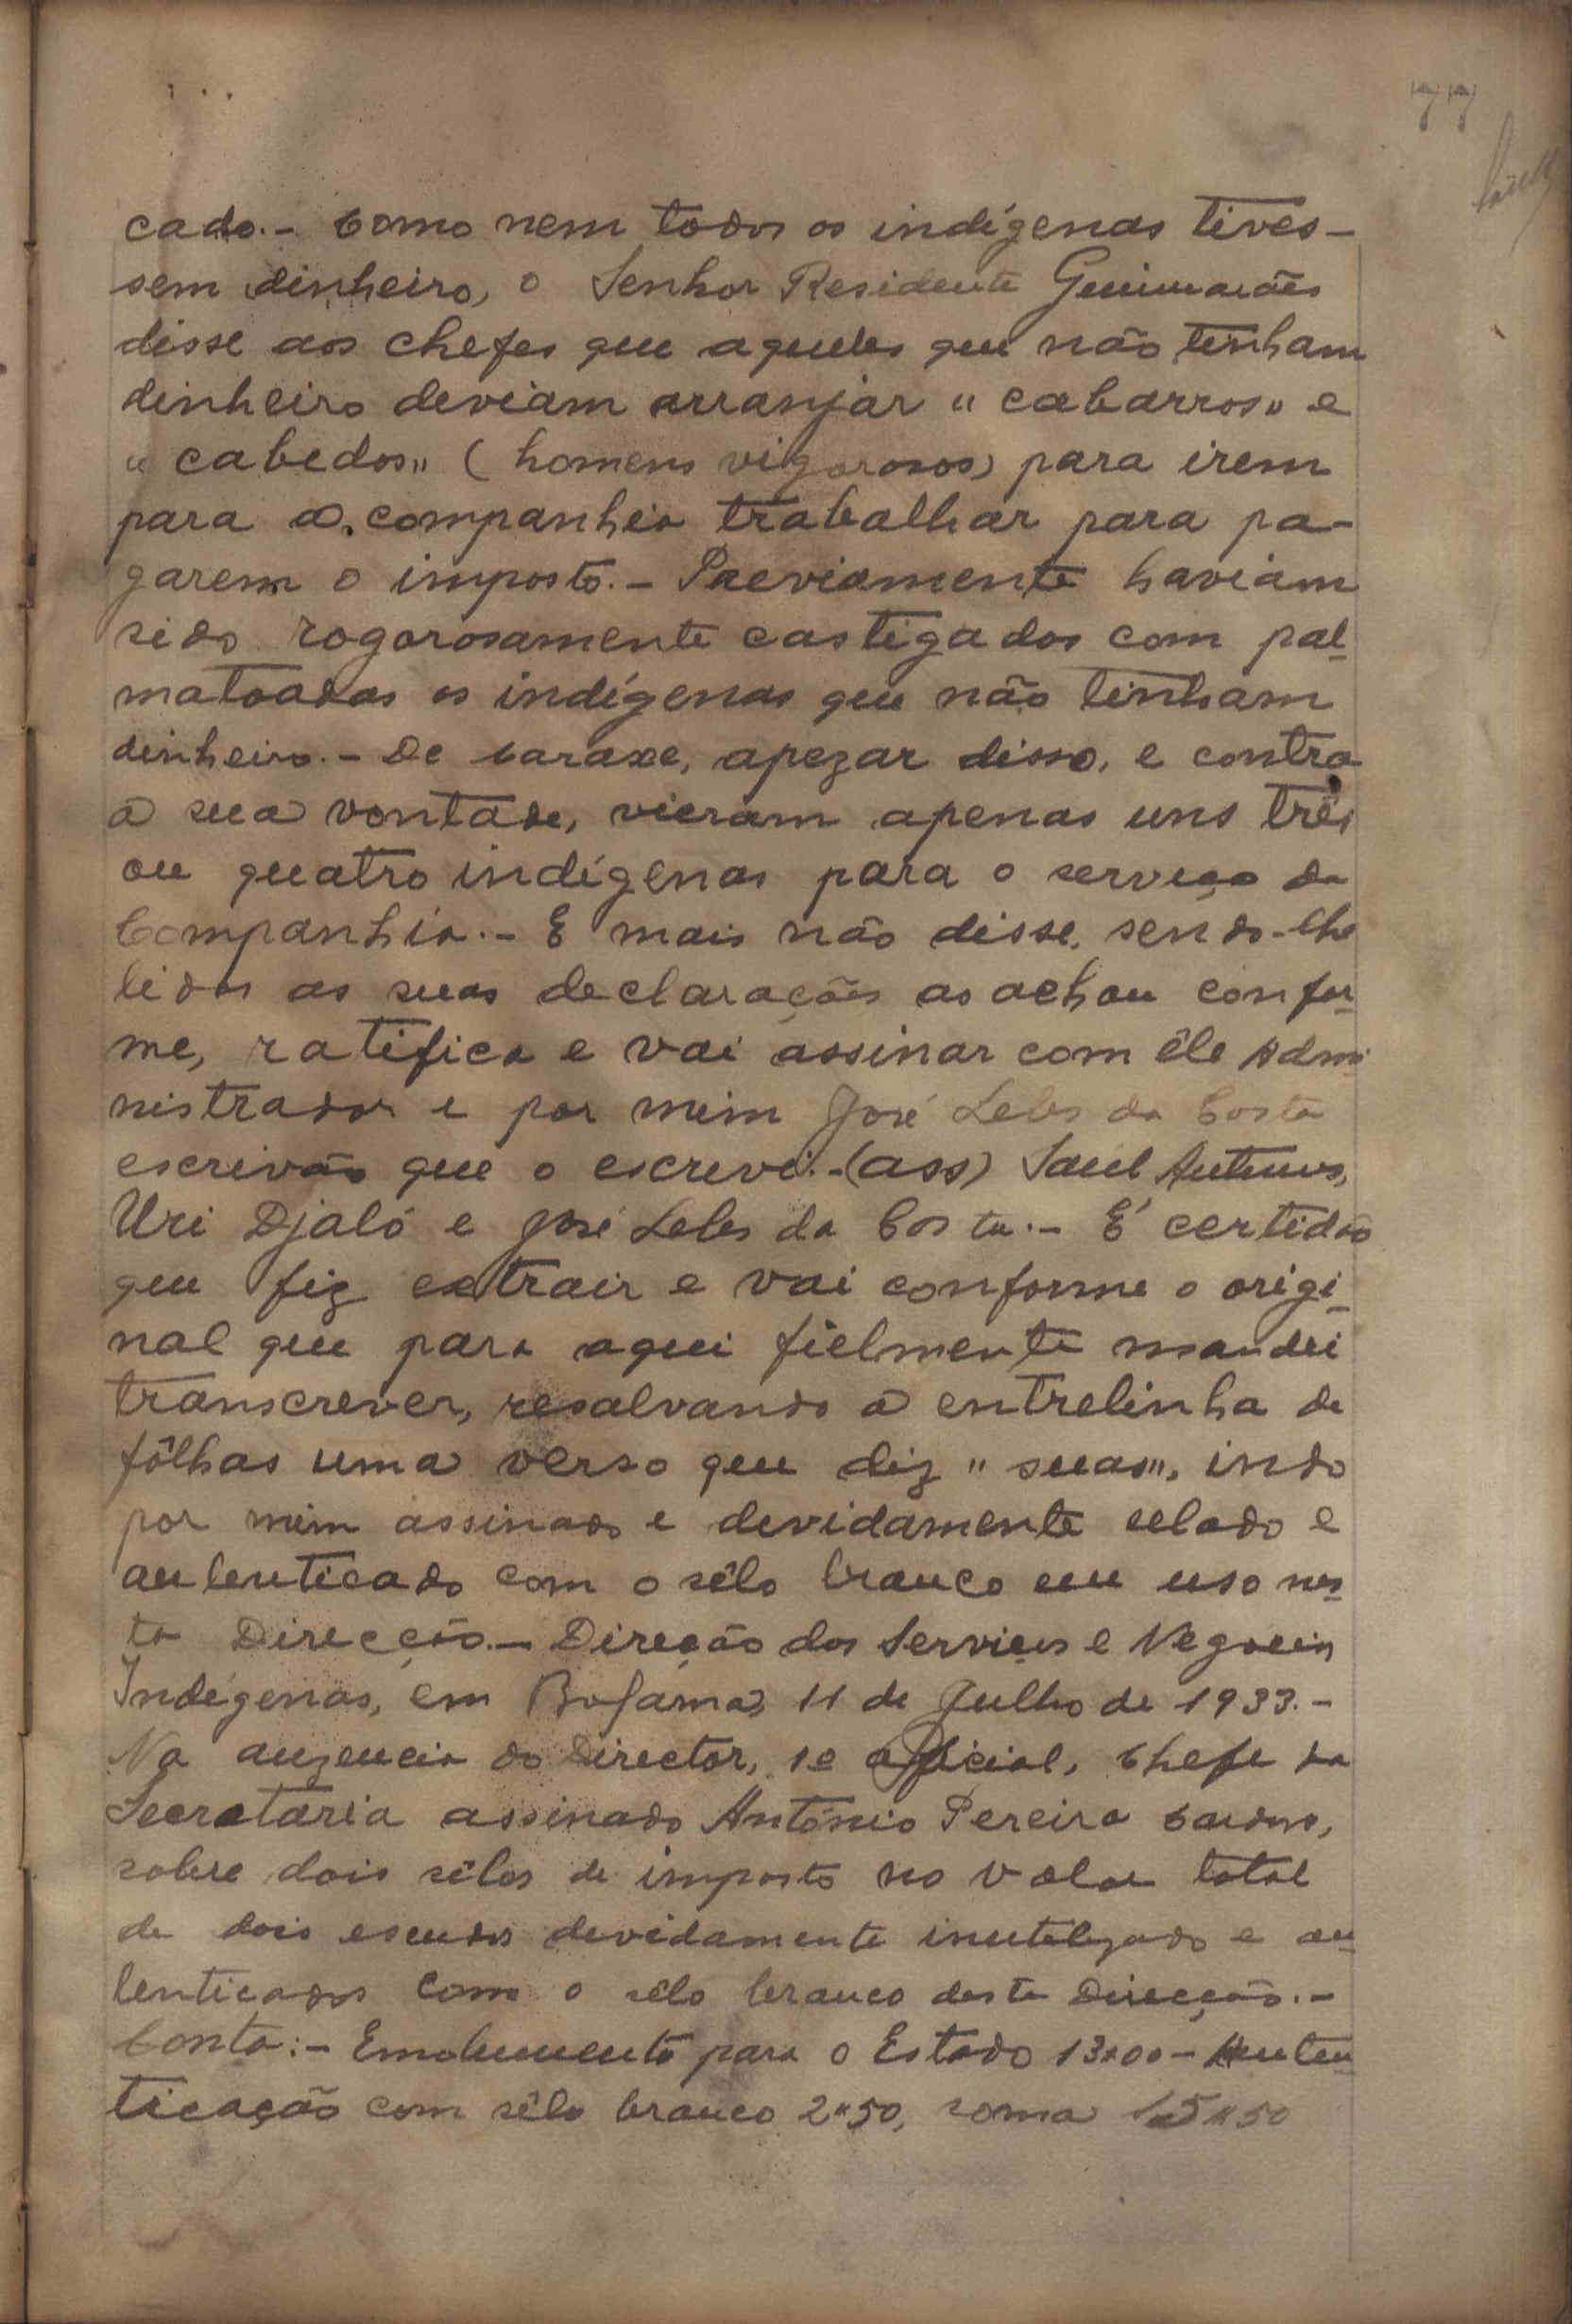 77
cado.- Como nem todos os indígenas tives-
sem dinheiro, o Senhor Residente Guimarães
disse aos chefes que aqueles que não tinham
dinheiro deviam arranjar "cabarros" e
"cabedos" (homens vigorosos) para irem
para a companhia trabalhar para pa-
garem o imposto.- Previamente haviam
sido rogorosamente castigados com pal-
matoadas os indígenas que não tinham
dinheiro.- De Caraxe, apezar disso, e contra
a sua vontade, vieram apenas uns três
ou quatro indígenas para o serviço da
Companhia.- E mais não disse, sendo-lhe
lidas as suas declarações as achou confor-
me, ratifica e vai assinar com êle Admi
nistrador e por mim José Leles da Costa
escrivão que o escrevi.-(ass) Saul Antunes,
Uri Djaló e José Leles da Costa.- É certidão
que fiz extrair e vai conforme o origi-
nal que para aqui fielmente mandei
transcrever, resalvando a entrelinha de
fôlhas uma verso que diz "suas", indo
por mim assinado e devidamente selado e
autenticado com o sêlo branco em uso nes-
ta Direcção.- Direção dos Serviços e Negocios
Indígenas, em Bolama, 11 de Julho de 1933.-
Na auzencia do Director, 1º Official, Chefe da
Secretaria assinado António Pereira Cardoso,
sobre dois sêlos de imposto no valor total
de dois escudos devidamente inutelizado e au-
tenticados com o sêlo branco desta Direcção.-
Conta:- Emolumento para o Estado 13$00-Auten
ticação com sêlo branco 2$50, soma 15$50